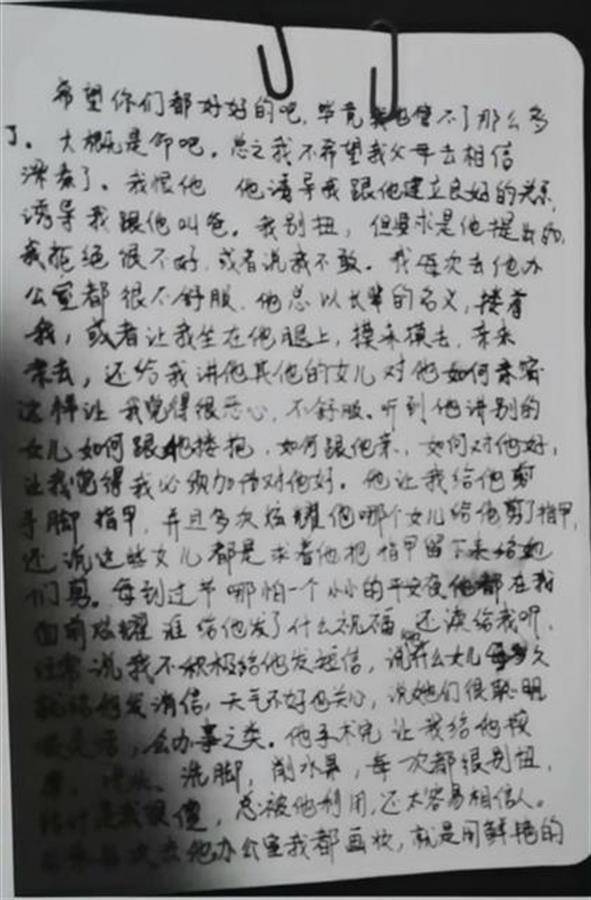 希望你们都好好的吧，毕竟我也管不了那么多
了。大概是命吧。总之我不希望我父母去相信
他了。我恨他 他诱导我跟他建立良好的关系
诱导我跟他叫爸。我别扭，但要求是他提出的，
我拒绝很不好，或者说我不敢。我每次去他办
公室都很不舒服，他总以长辈的名义，搂着
我，或者让我坐在他腿上，摸来摸去，亲来
亲去，还给我讲他其他的女儿对他如何亲密
这样让我觉得很恶心，不舒服。听到他讲别的
女儿如何跟他搂抱，如何跟他亲，如何对他好，
让我觉得我必须加倍对他好。他让我给他剪
手脚指甲，并且多次炫耀他哪个女儿给他剪了指甲，
还说这些女儿都是求着他把指甲留下来给她
们剪。每到过节哪怕一个小小的平安夜他都在我
面前炫耀谁给他发了什么祝福，还读给我听，
经常说我不积极给他发短信，说什么女儿多久
就给他发消信，天气不好也关心，说她们很聪明
会办事之类。他手术完让我给他按
洗脚，削水果，每一次都很别扭，
我很傻，总被他利用，还太容易相信人。
每次去他办公室我都画妆，就是用鲜艳的